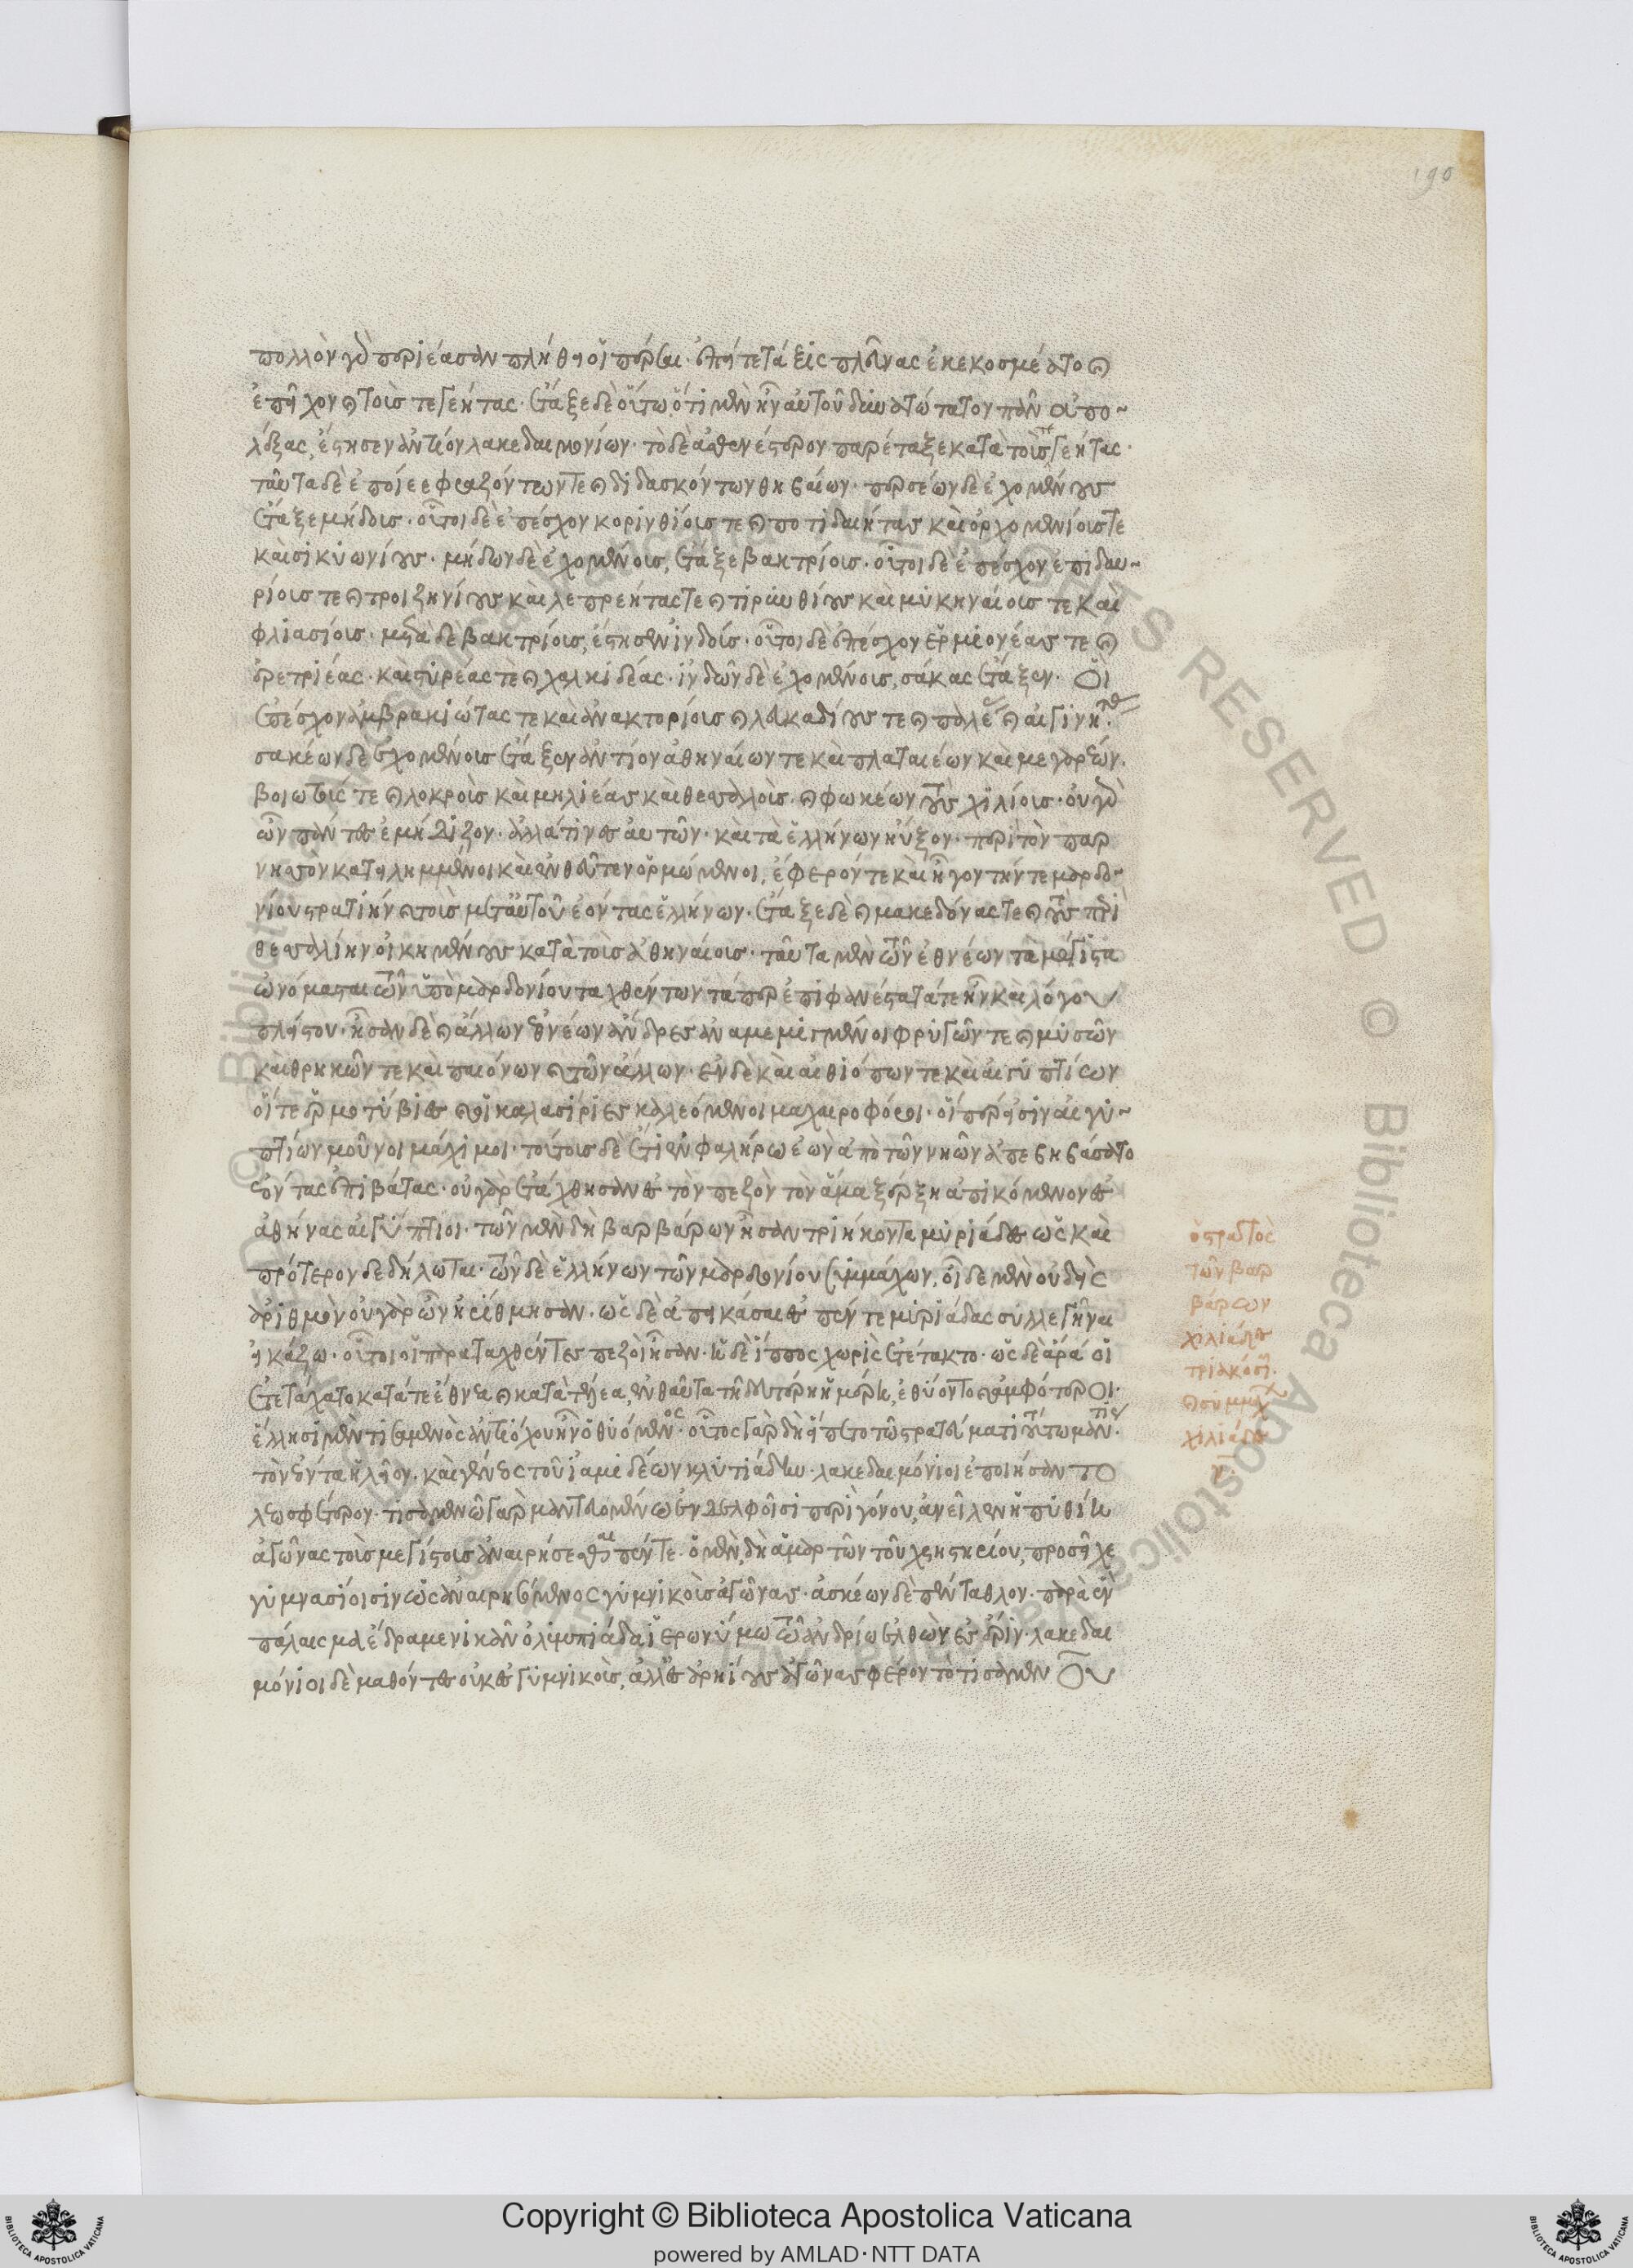 190
πολλὸν γὰρ περιέασαν πλήθεϊ οἱ πέρσαι. ἐπί τε τάξις πλεῦνας ἐκεκοσμέατο καὶ
ἐπεῖχον καὶ τοὺς τεγεήτας. ἔταξε δὲ οὕτω. ὅτι μὲν ἦν αὐτοῦ δυνατώτατον πᾶν ἀπο-
λέξας, ἔστησεν ἀντίον λακεδαιμονίων. τὸ δὲ ἀσθενέστερον παρέταξε κατὰ τοὺς τεγεήτας.
ταῦτα δὲ ἐποίεε φραζόντων τε καὶ διδασκόντων θηβαίων. περσέων δὲ ἐχομένους
ἔταξε μήδους. οὗτοι δὲ ἐπέσχον κορινθίους τε καὶ ποτιδαιήτας καὶ ὀρχομενίους τε
καὶ σικυωνίους. μήδων δὲ ἐχομένους, ἔταξε βακτρίους. οὗτοι δὲ ἐπέσχον ἐπιδαυ-
ρίους τε καὶ τροιζηνίους καὶ λεπρεήτας τε καὶ τιρυνθίους καὶ μυκηναίους τε καὶ
φλιασίους. μετὰ δὲ βακτρίους, ἔστησεν ἰνδούς. οὗτοι δὲ ἐπέσχον ἑρμιονέας τε καὶ
ἐρετριέας. καὶ στυρέας τὲ καὶ χαλκιδέας. ἰνδῶν δὲ ἐχομένους, σάκας ἔταξεν. οἳ
ἐπέσχον ἀμβρακιώτας τε καὶ ἀνακτορίους καὶ λευκαδίους τε καὶ παλέας καὶ αἰγινήτας.
σακέων δὲ ἐχομένους ἔταξεν ἀντίον ἀθηναίων τε καὶ πλαταιέων καὶ μεγαρέων.
βοιωτούς τε καὶ λοκροὺς καὶ μηλιέας καὶ θεσσαλοὺς. καὶ φωκέων τοὺς χιλίους. οὐ γὰρ
ὦν πάντες ἐμήδιζον. ἀλλά τινες αὐτῶν. καὶ τὰ ἑλλήνων ηὖξον. περὶ τὸν παρ
νησὸν κατειλημμένοι καὶ ἐνθεῦτεν ὁρμώμενοι, ἔφερόν τε καὶ ἦγον τήν τε μαρδο-
νίου στρατιὴν καὶ τοὺς μετ᾽ αὐτοῦ ἐόντας ἑλλήνων. ἔταξε δὲ καὶ μακεδόνας τε καὶ τοὺς περὶ
θεσσαλίην οἰκημένους κατὰ τοὺς ἀθηναίους. ταῦτα μὲν τῶν ἐθνέων τὰ μέγιστα
ὠνόμασται τῶν ὑπὸ μαρδονίου ταχθέντων τάπερ ἐπιφανέστατά τε ἦν καὶ λόγου
πλείστου. ἦσαν δὲ καὶ ἄλλων ἐθνέων ἄνδρες ἀναμεμιγμένοι φρυγῶν τε καὶ μυσῶν
καὶ θρηκῶν τε καὶ παιόνων καὶ τῶν ἄλλων. ἐν δὲ καὶ αἰθιόπων τε καὶ αἰγυπτίων
οἵ τε ἑρμοτύβιες καὶ οἱ καλασίριες καλεόμενοι μαχαιροφόροι. οἵπερ εἰσὶν αἰγυ-
πτίων μοῦνοι μάχιμοι. τούτους δὲ ἔτι ἐν φαλήρω ἐὼν ἀπὸ τῶν νηῶν ἀπεβιβάσατο
ἐόντας ἐπιβάτας. οὐ γὰρ ἐτάχθησαν ἐς τὸν πεζὸν τὸν ἅμα ξέρξη ἀπικόμενον ἐς
ἀθήνας αἰγύπτιοι. τῶν μὲν δὴ βαρβάρων ἦσαν τριήκοντα μυριάδες ὡς καὶ
πρότερον δεδήλωται. τῶν δὲ ἑλλήνων τῶν μαρδονίου συμμάχων, οἶδε μὲν οὐδεὶς
ἀριθμὸν οὐ γὰρ ὦν ἠριθμήθησαν. ὡς δὲ ἀπεικάσαι ἐς πέντε μυριάδας συλλεγῆναι
εἰκάζω. οὗτοι οἱ παραταχθέντες πεζοὶ ἦσαν. ἡ δὲ ἵππος χωρὶς ἐτέτακτο. ὡς δὲ ἄρα οἱ
ἐτετάχατο κατά τε ἔθνεα καὶ κατὰ τέλεα, ἐνθαῦτα τῆ δευτέρη ἡμέρη, ἐθύοντο καὶ ἀμφότεροι.
ἕλλησι μὲν τισαμενὸς ἀντιόχου ἦν ὁ θυόμενος. οὗτος γὰρ δὴ εἵπετο τῶ στρατεύματι τούτω μάντις.
τὸν ἐόντα ἠλεῖον. καὶ γένεος τοῦ ἰαμιδέων κλυτιάδην. λακεδαιμόνιοι ἐποιήσαντο
λεωσφέτερον. τισαμενῶ γὰρ μαντευομένω ἐν δελφοῖσι περὶ γόνου, ἀνεῖλεν ἡ πυθίη
ἀγῶνας τοὺς μεγίστους ἀναιρήσεσθαι πέντε. ὁ μὲν, δὴ ἁμαρτῶν τοῦ χρηστηρίου, προσεῖχε
γυμνασίοισιν ὡς ἀναιρησόμενος γυμνικοὺς ἀγῶνας. ἀσκέων δὲ πένταθλον. παρὰ ἓν
πάλαισμα ἔδραμε νικᾶν ὀλυμπιάδα ἱερωνύμω τῶ ἀνδρίω ἐλθὼν ἐς ἔριν. λακεδαι
μόνιοι δὲ μαθόντες οὐκ ἐς γυμνικοὺς, ἀλλ᾽ ἐς ἀρηίους ἀγῶνας φέρον τὸ τισαμενοῦ
ὁ στρατὸς
τῶν βαρ
βάρων
χιλιάδες
τριακόσι.
καὶ σύμμαχ
χιλιάδες
ν.
Copyright © Biblioteca Apostolica Vaticana
powered by AMLAD·NTT DATA